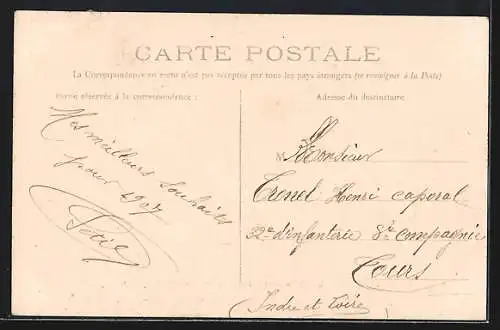 CARTE POSTALE
La Correspondance au recto n'est pas acceptée par tous les pays étrangers (se renseigner à la Poste)
Partie réservée à la correspondance :
Adresse du destinataire
Mes meilleurs souhaits
pour 1907
M
Monsieur
Henri caporal
32e d'infanterie 8e compagnie
Tours
Indre et Loire